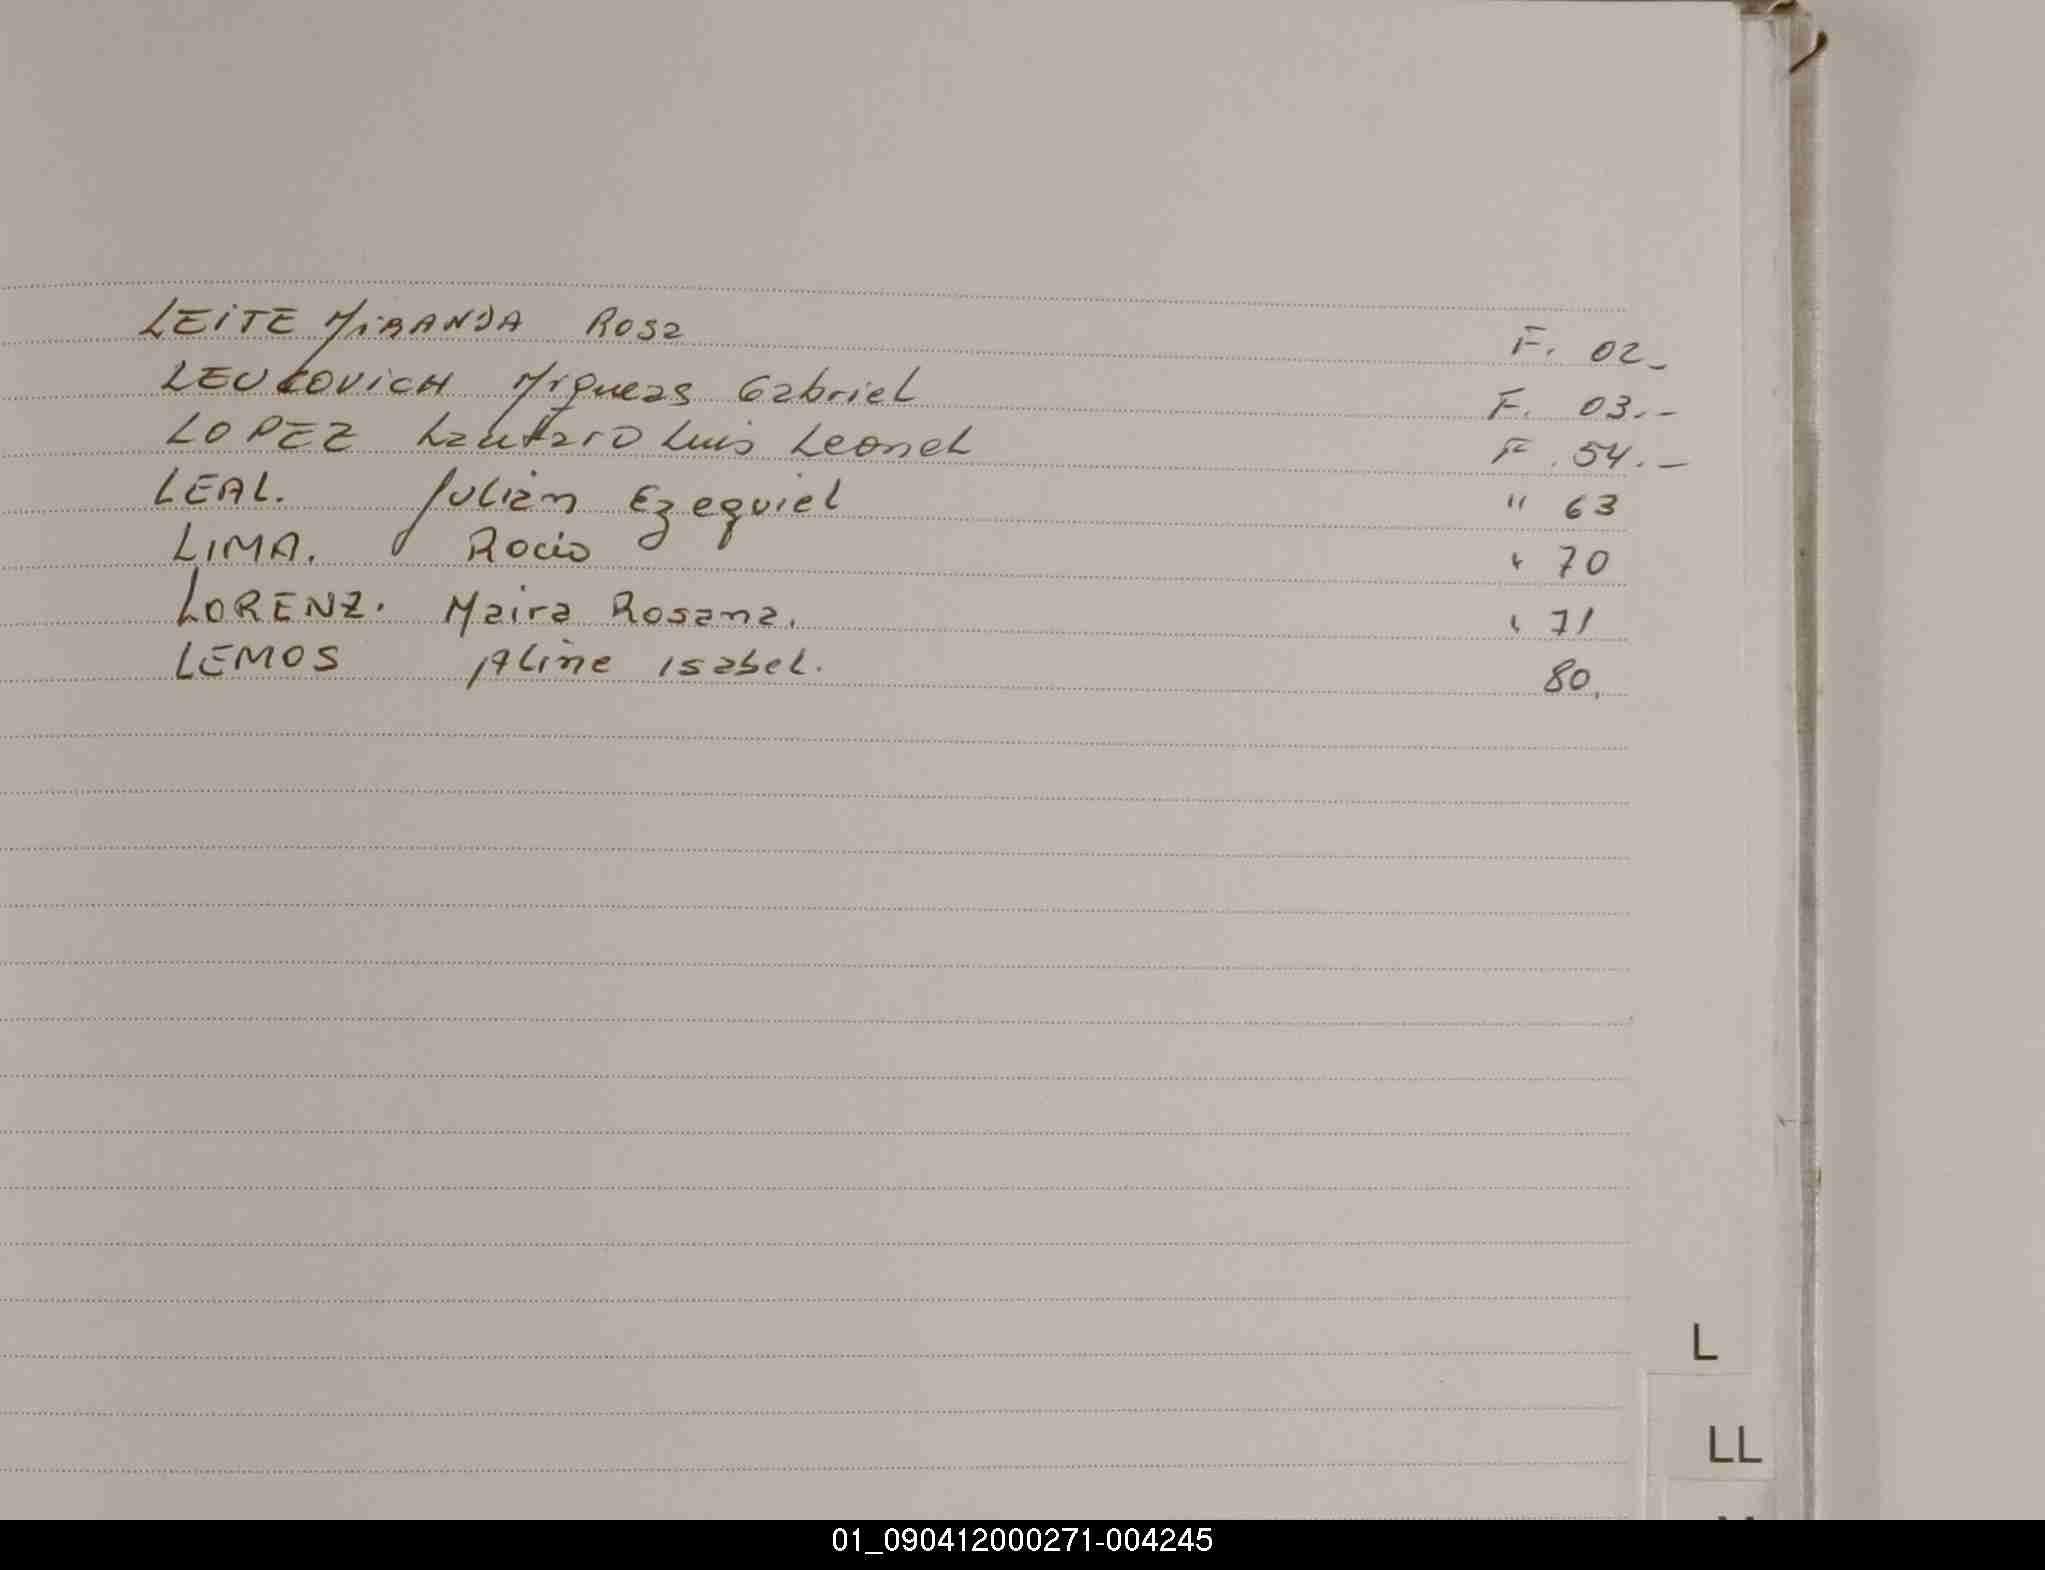 LEITE MIRANDA Rosa F. 02_
LEUCOVICH Migueas Gabriel F. 03.-
LOPEZ Lautaro Luis Leonel F. 54.-
LEAL. Julián Ezequiel " 63
LIMA. Rocio " 70
LORENZ. Maira Rosana. " 71
LEMOS Aline Isabel. 80.
L
LL
01_090412000271-004245